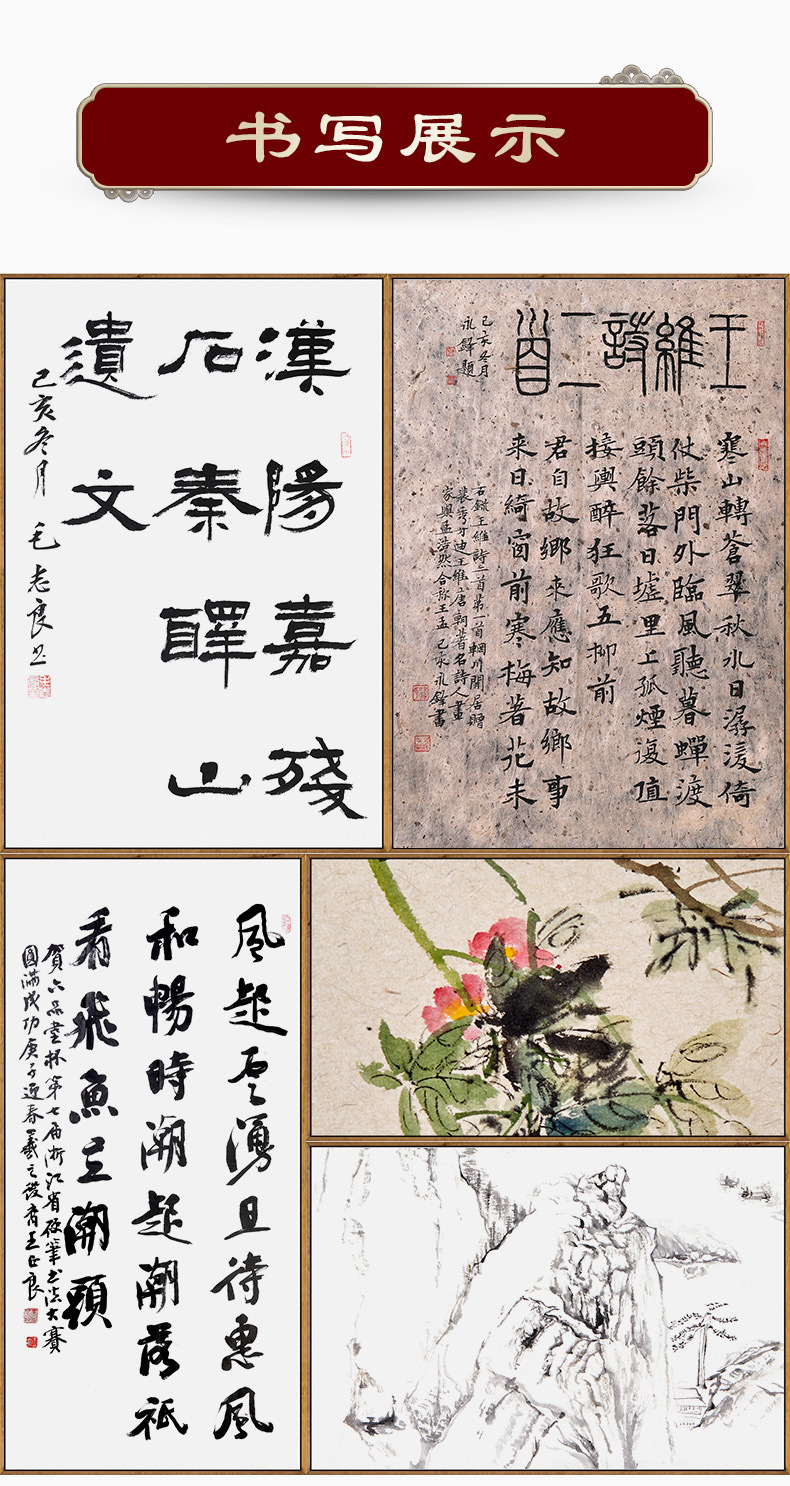 书写展示
漢陽嘉残
石秦驛山
遺文
己亥冬月 毛志良书
王維詩二首
己亥冬月
永鋒題
寒山轉蒼翠秋水日潺湲倚
仗柴門外臨風聽暮蟬渡
頭餘落日墟里上孤煙復值
接輿醉狂歌五柳前
君自故鄉來應知故鄉事
来日綺窗前寒梅著花未
右錄王維詩二首第一首輞川閒居贈
裴秀才迪王維唐朝著名詩人畫
家與孟浩然合称王孟 己亥永鋒書
風起雲湧且待惠風
和暢時潮起潮落祇
看飛魚立潮頭
賀六品堂杯第七届浙江省硬筆书法大賽
圓滿成功庚子迎春